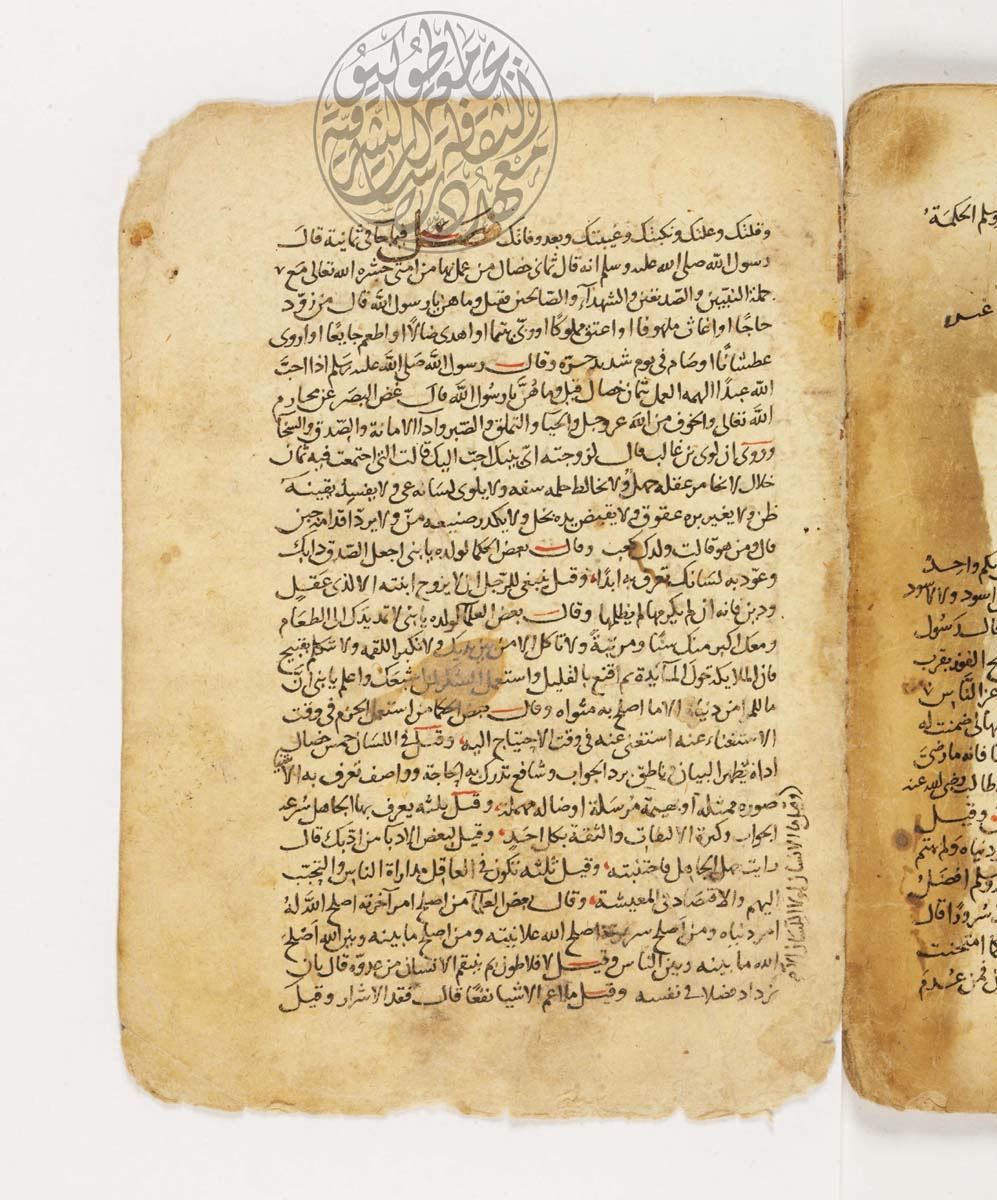 وقلتك وعلتك ونكبتك وغيبتك وبعد وفاتك فصل فيما جآ في ثمانية قال
رسول الله صلى الله عليه وسلم انه قال ثماني خصال من عمل بها من امتي حشره الله تعالى مع
جملة النبيين والصديقين والشهدآء والصالحين فقيل وما هن يا رسول الله قال من زود
حاجا او اغاث ملهوفا او اعتق مملوكا او ربى يتيما او اهدى ضالا او اطعم جايعا او اروى
عطشانا او صام في يوم شديد حره وقال رسول الله صلى الله عليه وسلم اذا احب
الله عبدا الهمه العمل بثمان خصال قيل وما هن يا رسول الله قال غض البصر عن محارم
الله تعالى والخوف من الله عز وجل والحيا والتملق والصبر وادآ الامانة والصدق والسخآ
وروي ان لوى بن غالب قال لزوجته اي بنيك احب اليك قالت الذي اجتمعت فيه ثمان
خلال لا يخامر عقله جهل ولا يخالط حلمه سفه ولا يلوى لسانه عي ولا يفسد يقينه
ظن ولا يغير بره عقوق ولا يقبض يده بخل ولا يكدر صنيعه من ولا يرد اقدامه جبن
قال ومن هو قالت ولدك كعب وقال بعض الحكما لولده يا بني اجعل الصدق دابك
وعود به لسانك تعرف به ابدا وقيل ينبغي للرجل ان لا يزوج ابنته الا لذي عقل
ودين فانه ان لم يكرمها لم يظلمها وقال بعض العلما لولده يا بني لا تمد يدك الى الطعام
ومعك اكبر منك سنا ومرتبة ولا تاكل الا من بين يديك ولا تكبر اللقمه ولا تتكلم بقبيح
فان الملايكة حول المآيدة ثم اقنع بالقليل واستعمل الشكر لمن اشبعك واعلم يا بني ان
ما للمرا من دنياه الا ما اصلح به مثواه وقال بعض الحكما من استعمل الحزم في وقت
الاستغناء عنه استغنى عنه في وقت الاحتياج اليه وقيل في اللسان خمس خصال
اداة يظهر البيان في ناطق يرد الجواب وشافع تدرك به الحاجة وواصف تعرف به الا
صوره ممثله او بهيمة مرسلة او ضاله مهمله وقيل ثلثه يعرف بها الجاهل سرعة
الجواب وكثرة الالتفات والثقة بكل احد وقيل لبعض الادبا من ادبك قال
رايت جهل الجاهل فاجتنبته وقيل ثلثة تكون في العاقل مداراة الناس والتحبب
اليهم والاقتصاد في المعيشة وقال بعض العلما من اصلح امر آخرته اصلح الله له
امر دنياه ومن اصلح سريرته اصلح الله علانيته ومن اصلح ما بينه وبين الله اصلح
الله ما بينه وبين الناس وقيل لافلاطون بم ينتقم الانسان من عدوه قال بان
يزداد فضلا في نفسه وقيل ما اعم الاشيا نفعا قال فقد الاشرار وقيل
وقيل ما الانسان لولا اللسان الا
معهد الثقافة والدراسات الشرقية
وسلم الحكمة
يكم واحد
اسود ولا
قال رسول
عز الناس
طالب رضي الله عنه
وقيل